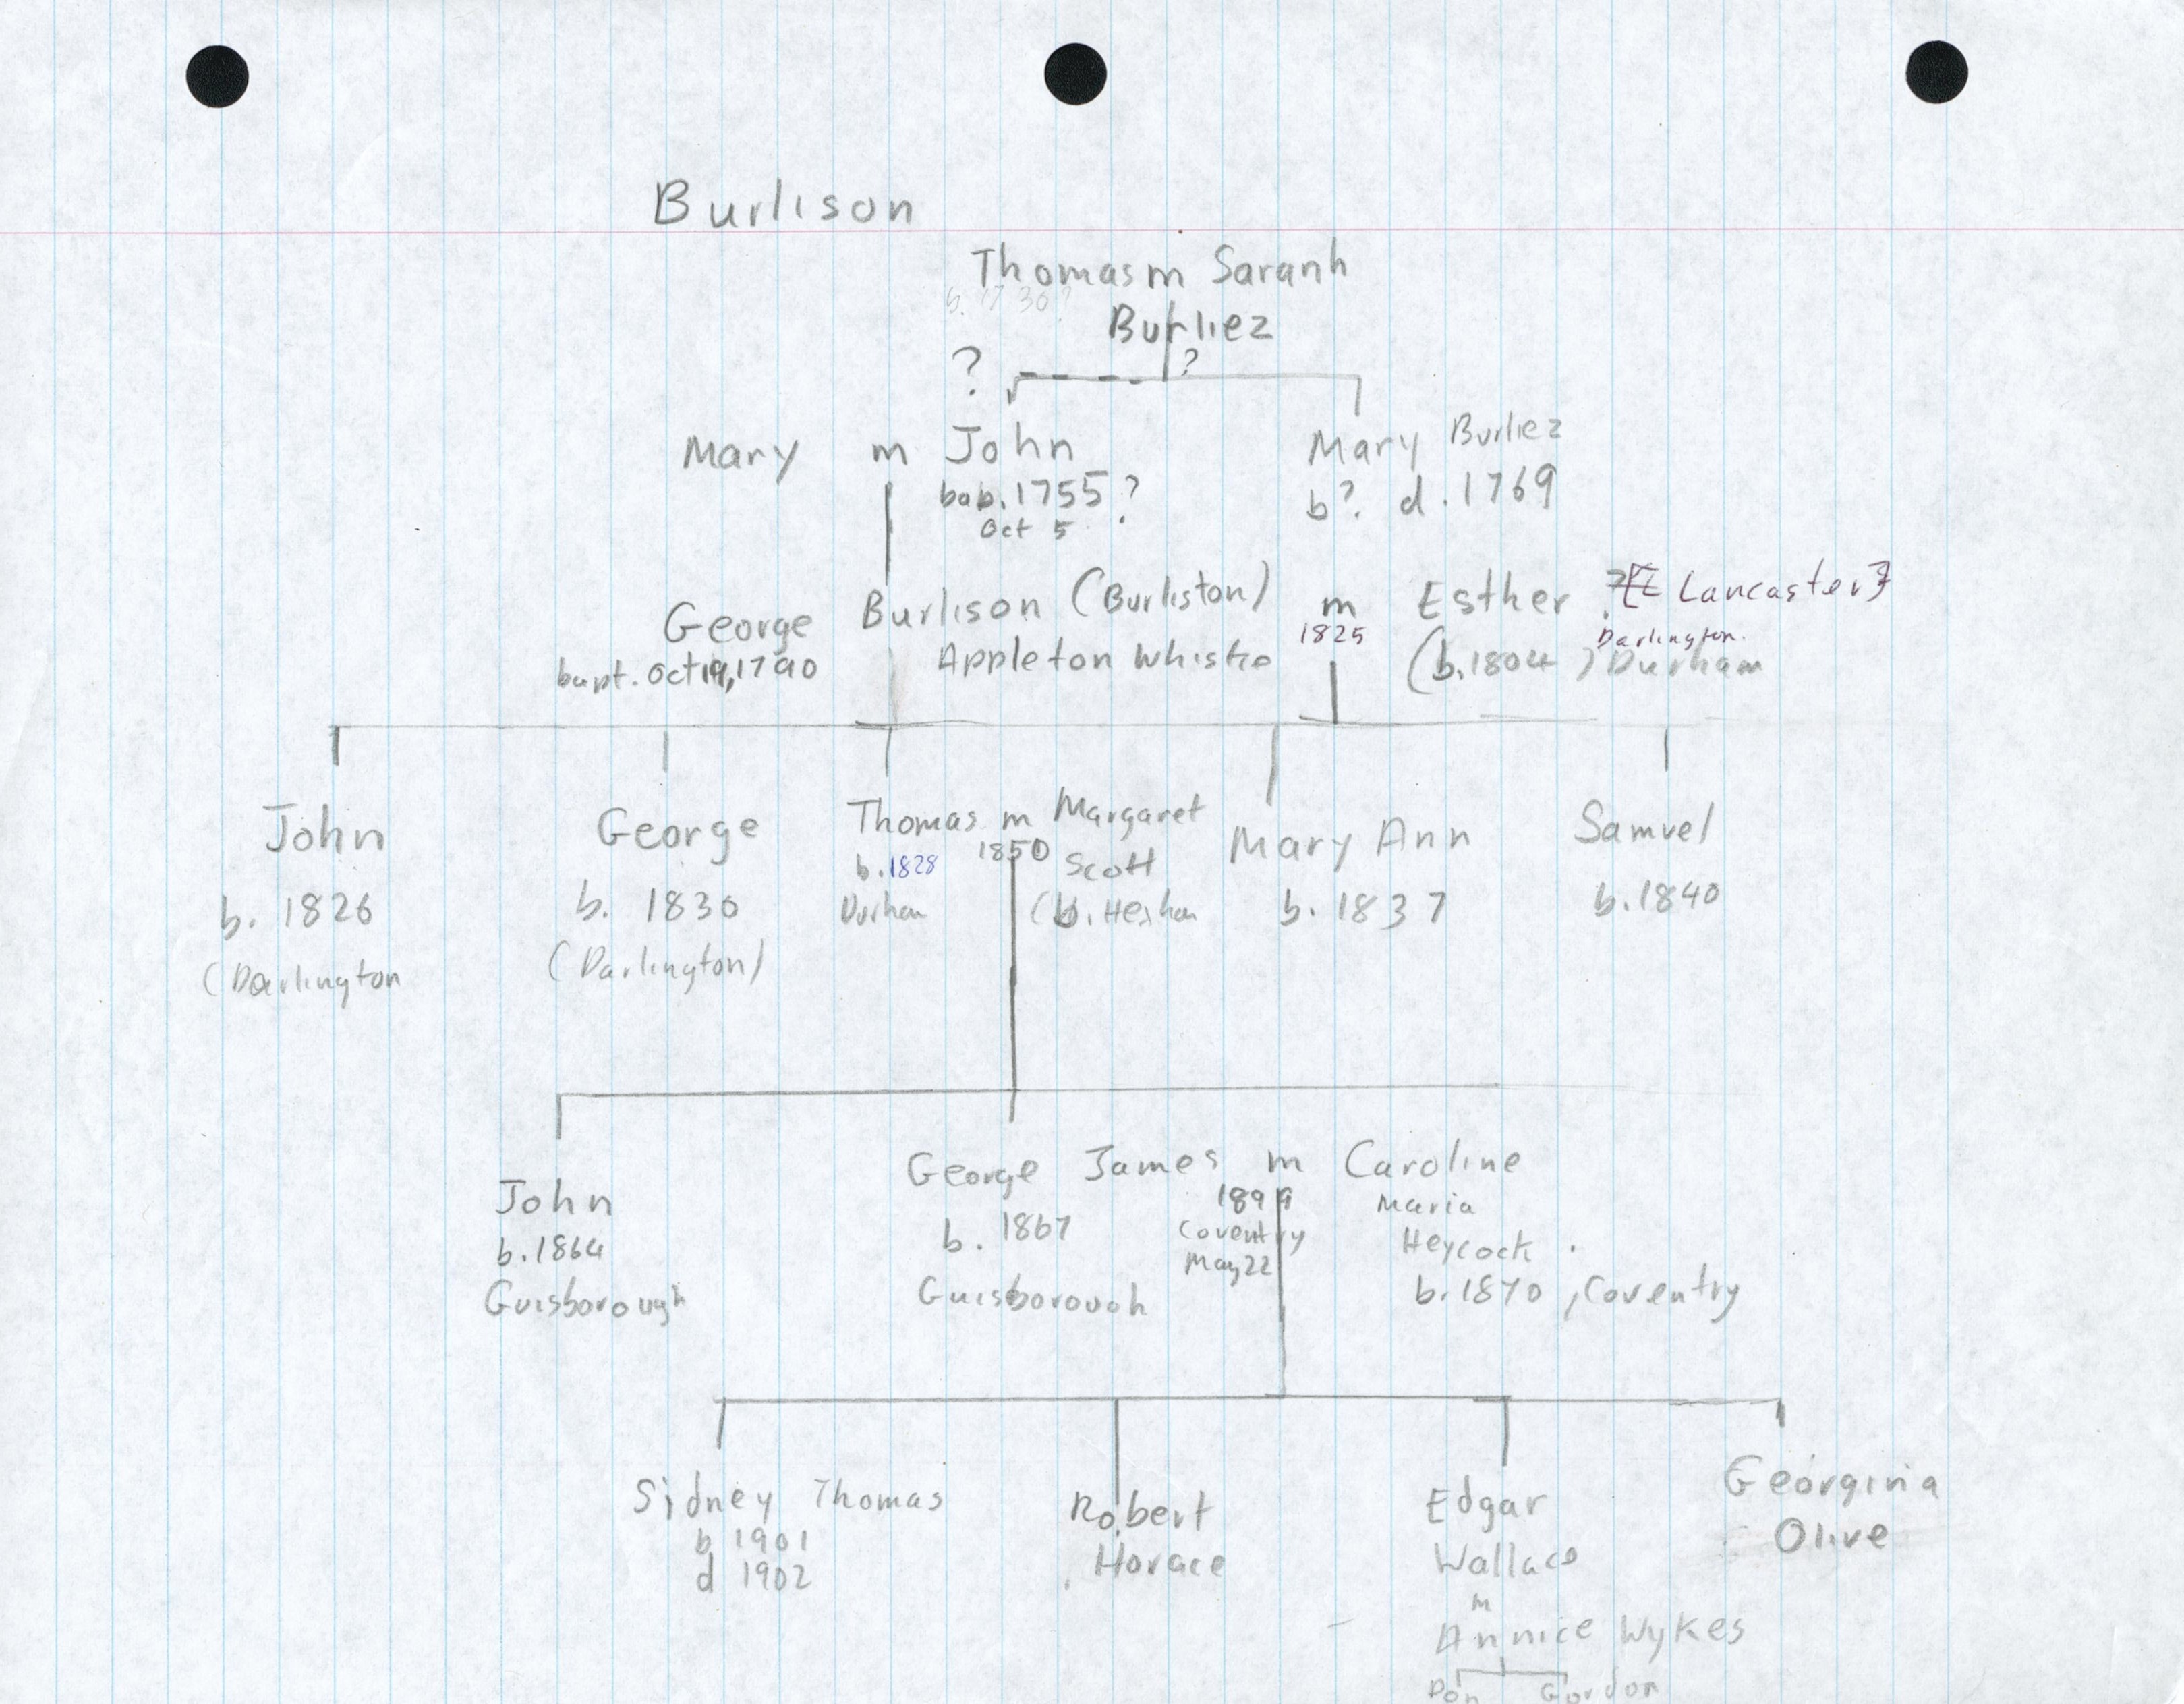 Burlison
Thomas m Saranh
b. 1730?
Burliez
? ?
Mary m John Mary Burliez
bab. 1755 ? b? d. 1769
Oct 5
George Burlison (Burliston) m Esther ? [E Lancaster]
1825 Darlington.
bapt. Oct 19, 1790 Appleton Whisko (b. 1804) Durham
John George Thomas m Margaret Mary Ann Samuel
1850
b. 1826 b. 1830 b. 1828 Scott b. 1837 b. 1840
(Darlington (Darlington) Durham (b. Hexham
John George James m Caroline
b. 1864 b. 1867 1899 Maria
Guisborough Guisborough Coventry Heycock
May 22 b. 1870, Coventry
Sidney Thomas Robert Edgar Georgina
b 1901 Horace Wallace Olive
d 1902
m
Annice Wykes
Don Gordon